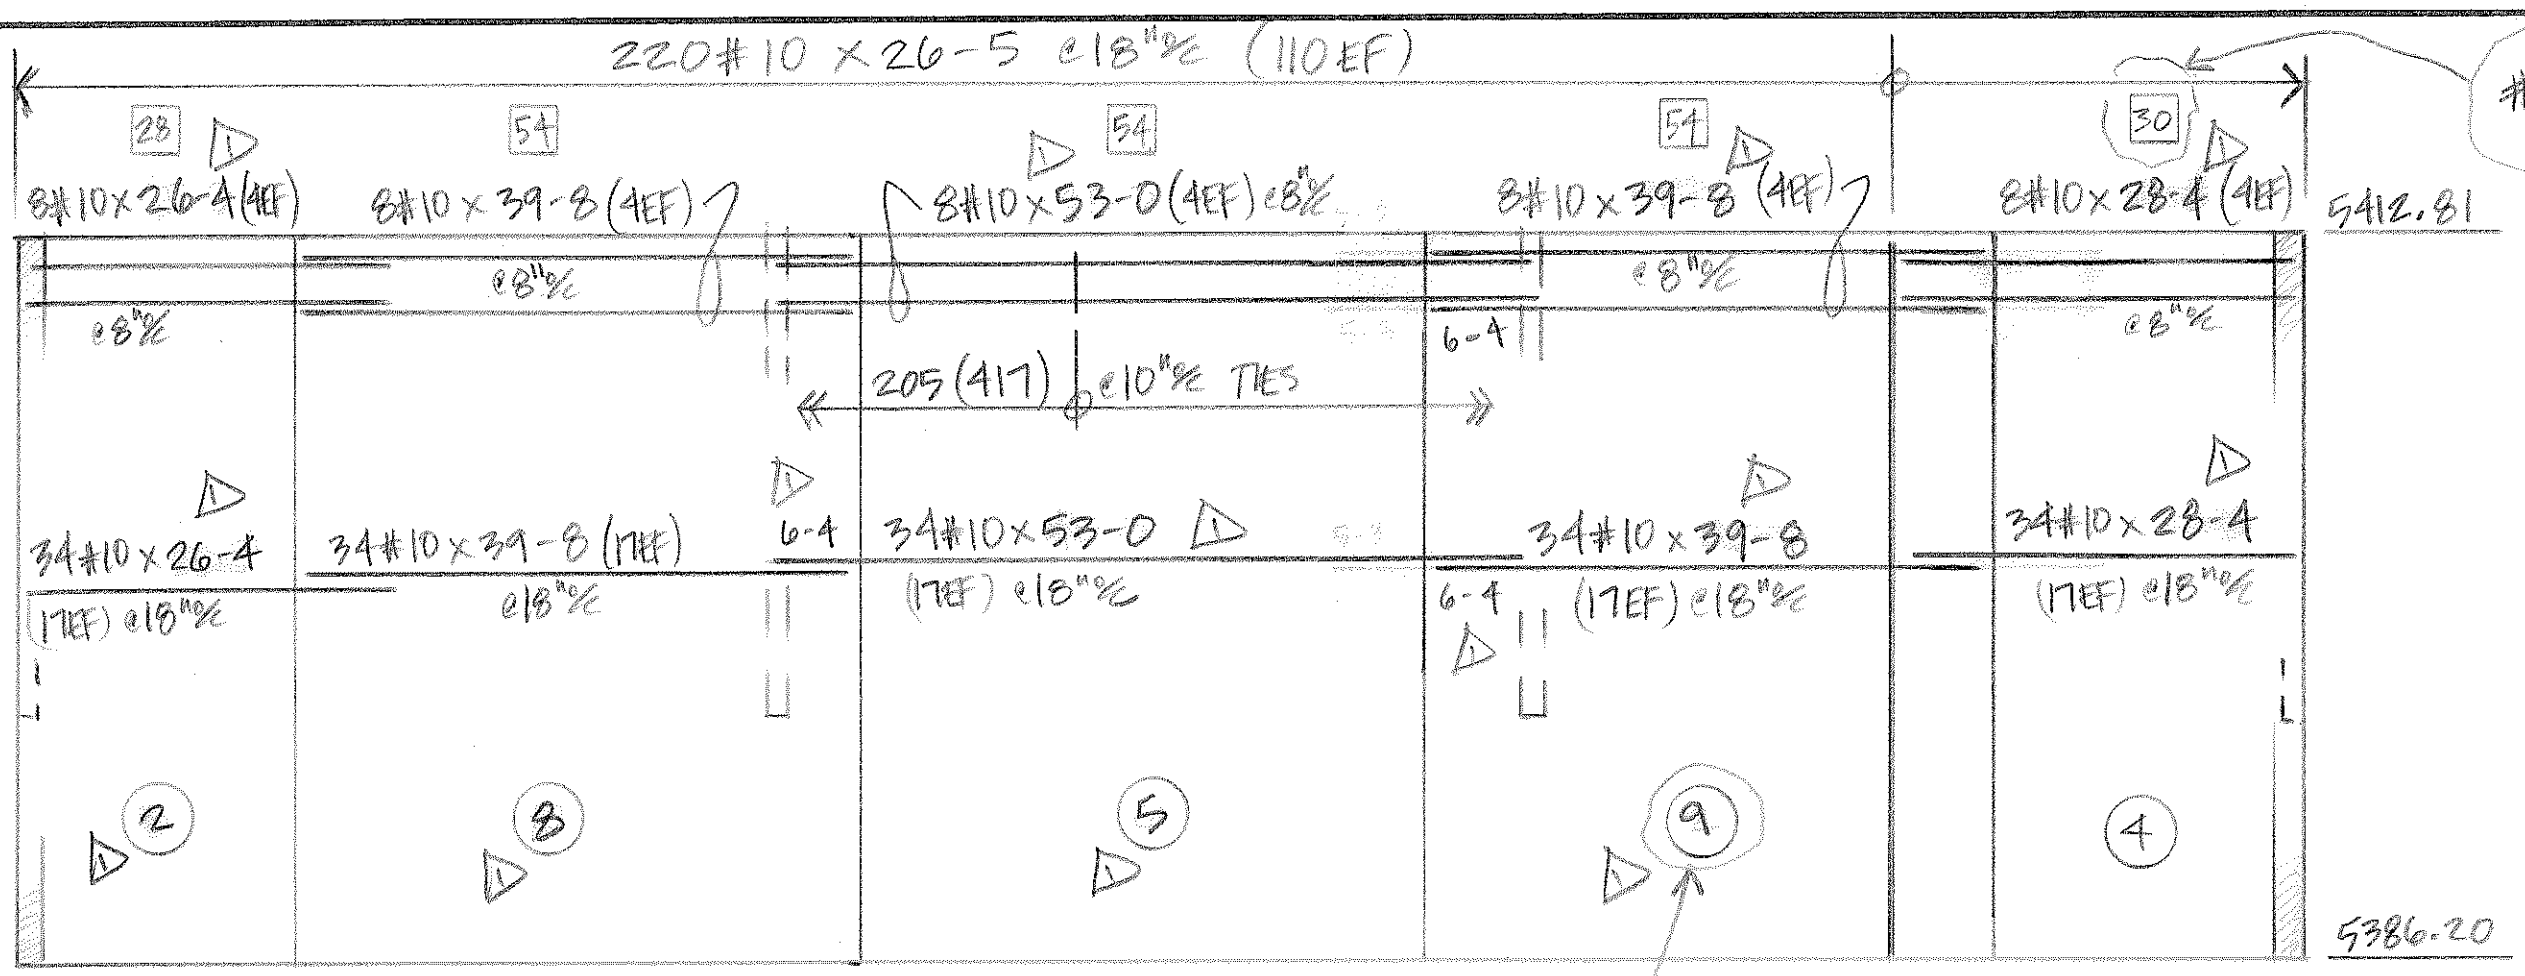 220#10 x 26-5 @18"o/c (110EF)
28 1 54 1 54 54 1 30 1
#
8#10x26-4(4EF) 8#10 x 39-8 (4EF) 8#10x53-0(4EF)@8"o/c 8#10x39-8 (4EF) 8#10x28-4 (4EF) 5412.81
@8"o/c @8"o/c @8"o/c @8"o/c
6-4
205(417) @10"o/c TIES
1 1 1 1
34#10x26-4 34#10x39-8(17EF) 6-4 34#10x53-0 1 34#10x39-8 34#10x28-4
(17EF) @18"o/c @18"o/c (17EF) @18"o/c 6-4 (17EF)@18"o/c (17EF) @18"o/c
1
2 8 5 9 4
1 1 1 1
5386.20